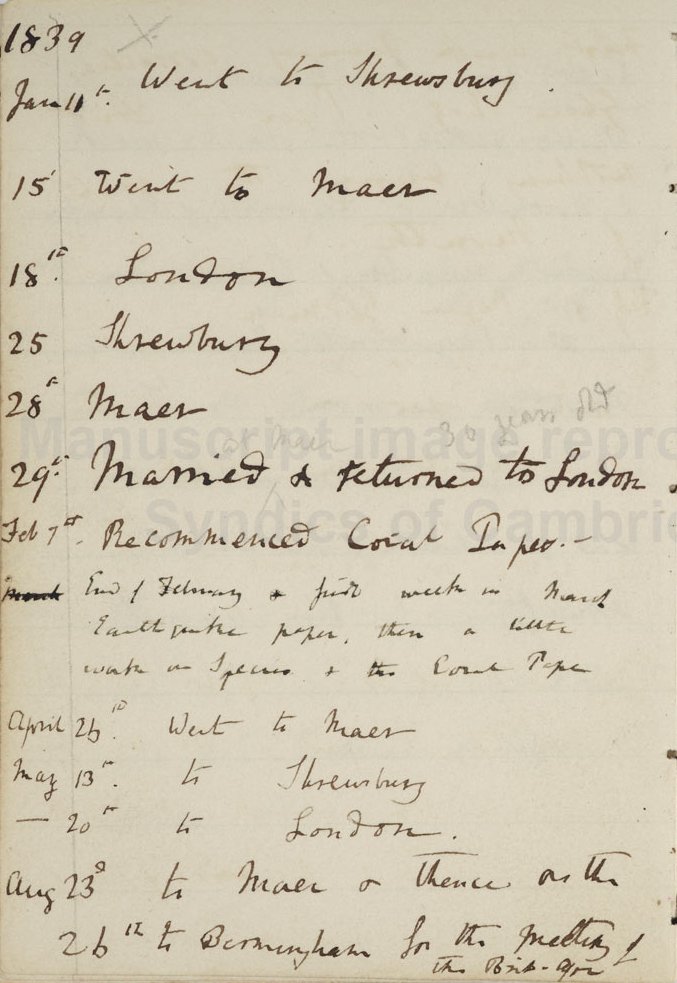 1839
Jan 11th. Went to Shrewsbury.
15 Went to Maer
18th. London
25 Shrewbury
28th Maer
at Maer 30 years old
29th. Married & returned to London.
Feb 7th. Recommenced Coral Paper.—
March End of February & first week in March
Earthquake paper, then a little
work on Species & the Coral Paper
April 26th. Went to Maer
May 13th. to Shrewsbury
— 20th to London.
Aug 23d to Maer & thence on the
26th to Birmingham for the meeting of
the Brit. Assoc
Manuscript image repro
Syndics of Cambrid